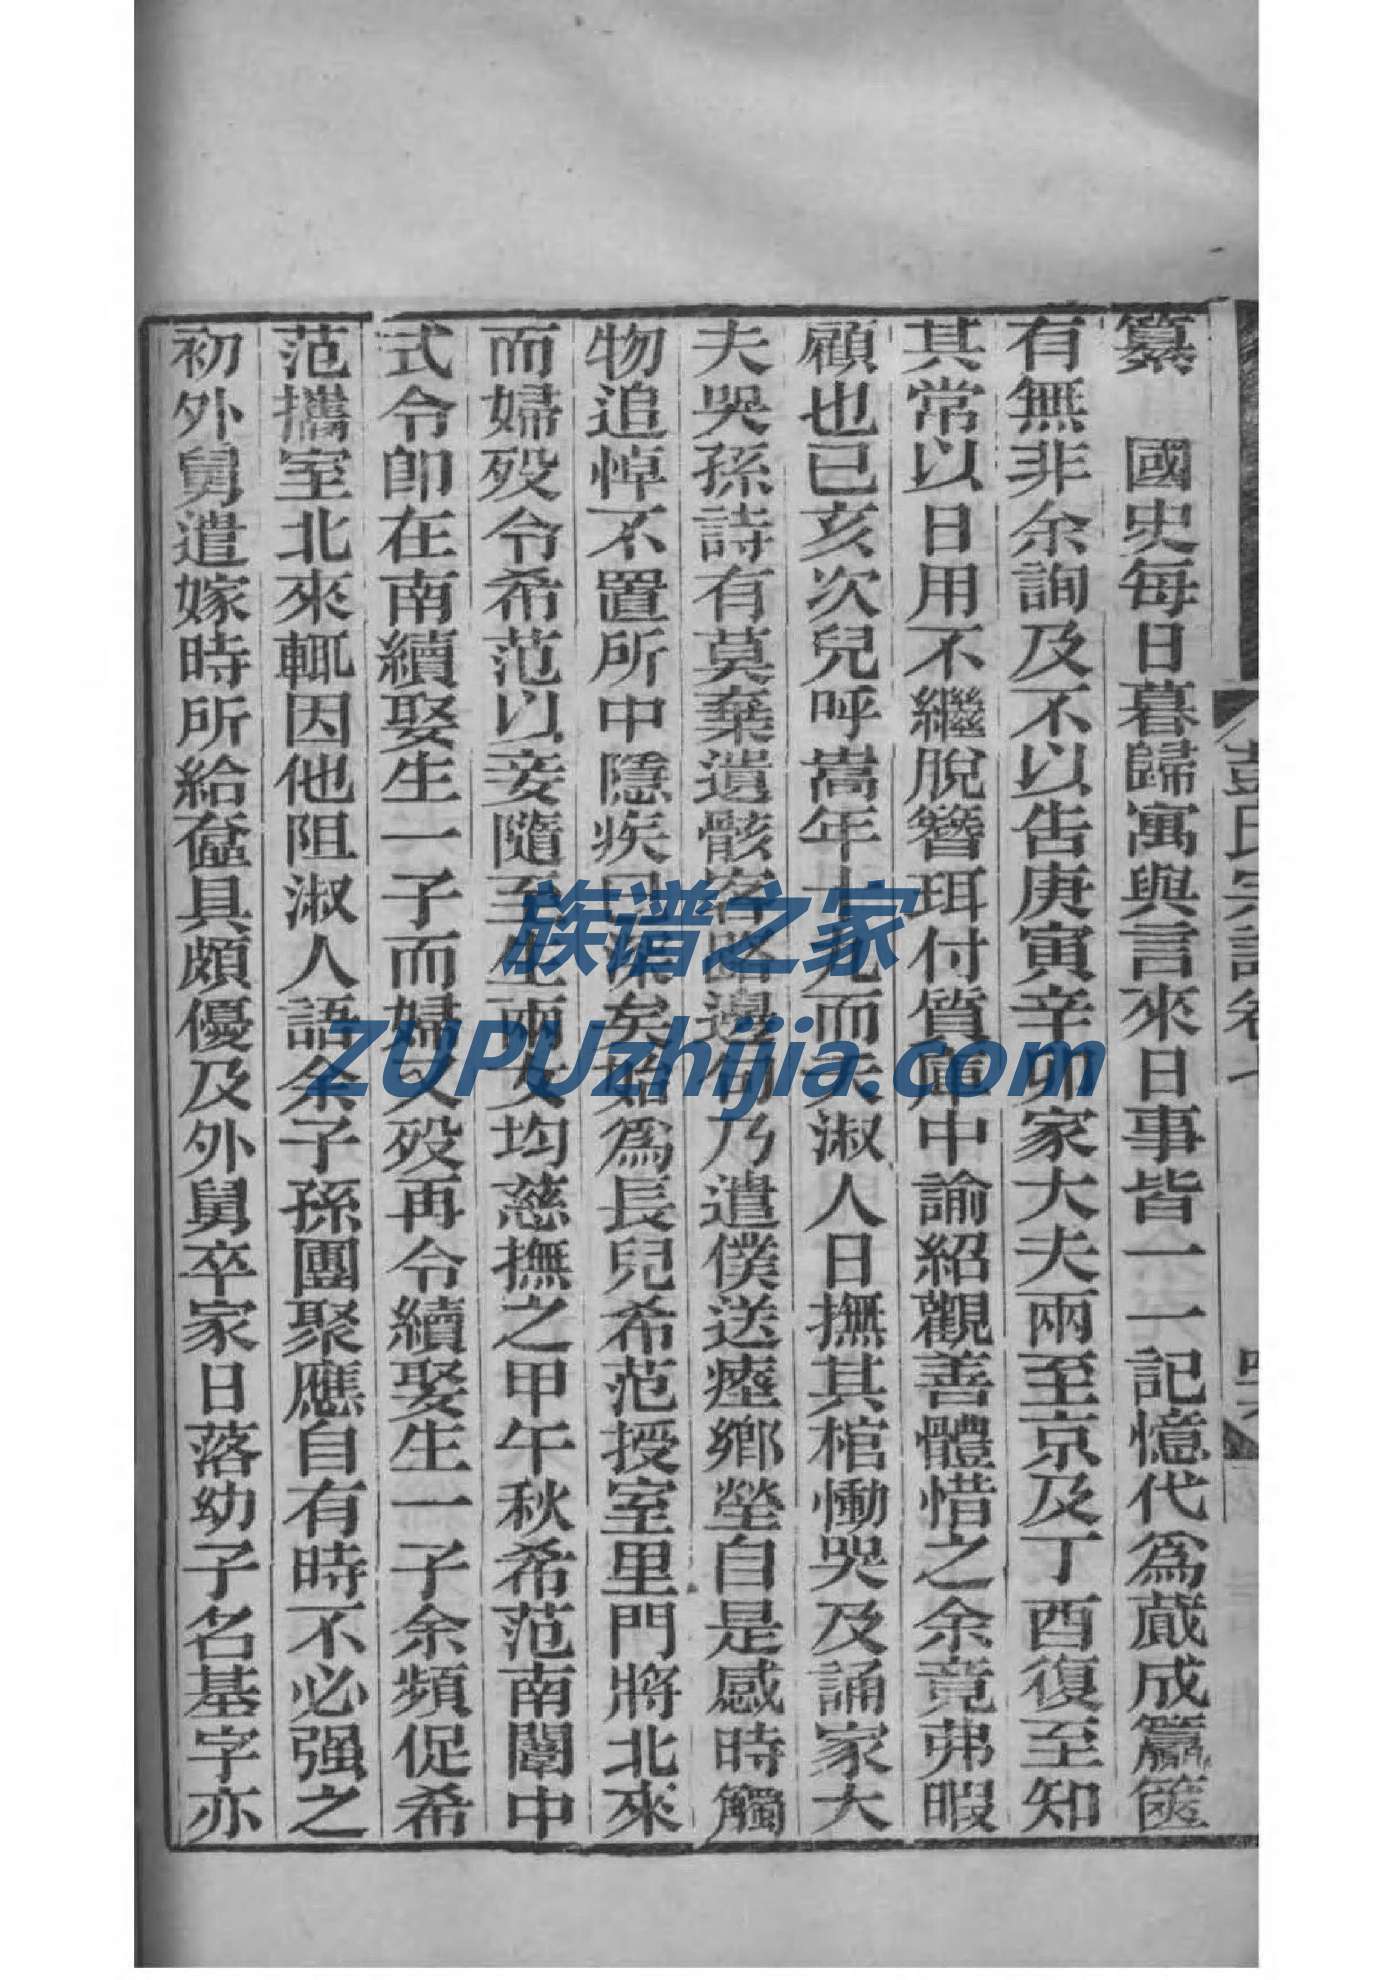 纂　國史每日暮歸寓與言來日事皆一一記憶代爲蕆成籝篋
有無非余詢及不以告庚寅辛卯家大夫兩至京及丁酉復至知
其常以日用不繼脫簪珥付質庫中諭紹觀善體惜之余竟弗暇
顧也已亥次兒呼嵩年十九而夭淑人日撫其棺慟哭及誦家大
夫哭孫詩有莫棄遺骸客路邊句乃遣僕送瘞鄉塋自是感時觸
物追悼不置所中隱疾日深矣始爲長兒希范授室里門將北來
而婦歿令希范以妾隨至生兩女均慈撫之甲午秋希范南闈中
式令即在南續娶生一子而婦又歿再令續娶生一子余頻促希
范攜室北來輒因他阻淑人語余子孫團聚應自有時不必强之
初外舅遣嫁時所給奩具頗優及外舅卒家日落幼子名基字亦
彭氏宗譜卷七
族谱之家
ZUPUzhijia.com